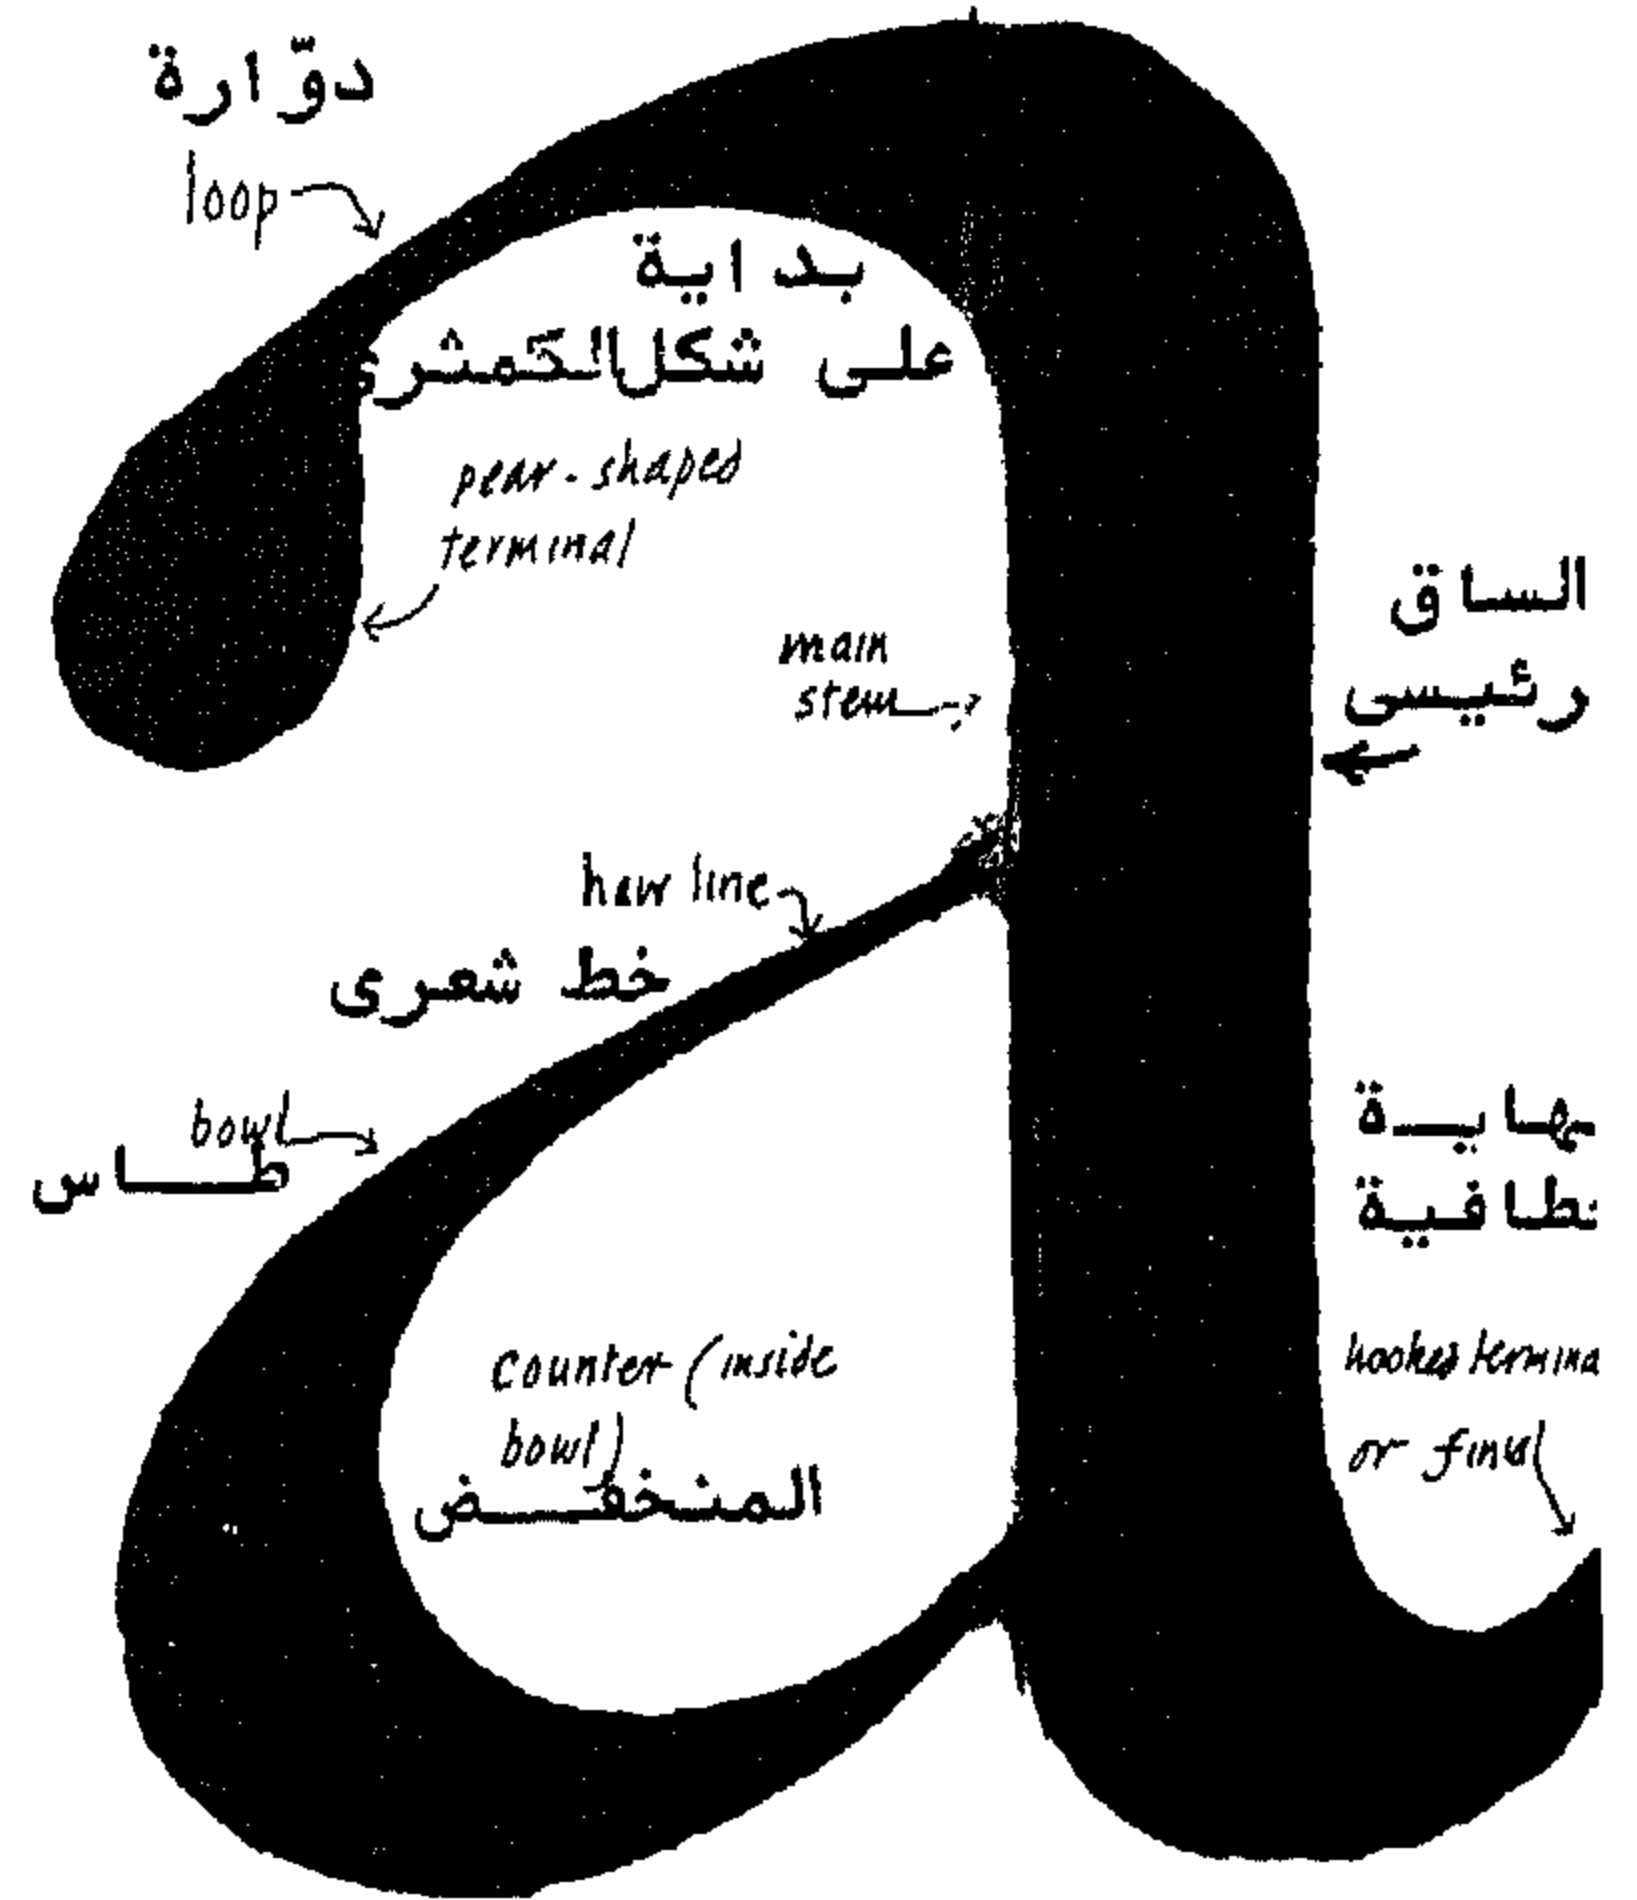 دوّارة
loop
بداية
على شكل الكمثرى
pear-shaped
terminal
الساق
رئيسى
main
stem
hair line
خط شعرى
bowl
طاس
هاية
طافية
counter (inside
bowl)
المنخفض
hooked termina
or final